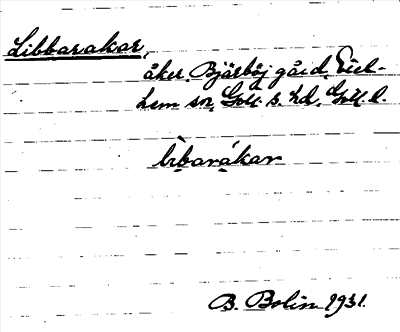 Libbarakar,
åker, Bjärböj gård, Eksl-
hem sn, Gotl. s. hd, Gotl. l.
bibaråkar
B. Bolin 1931.